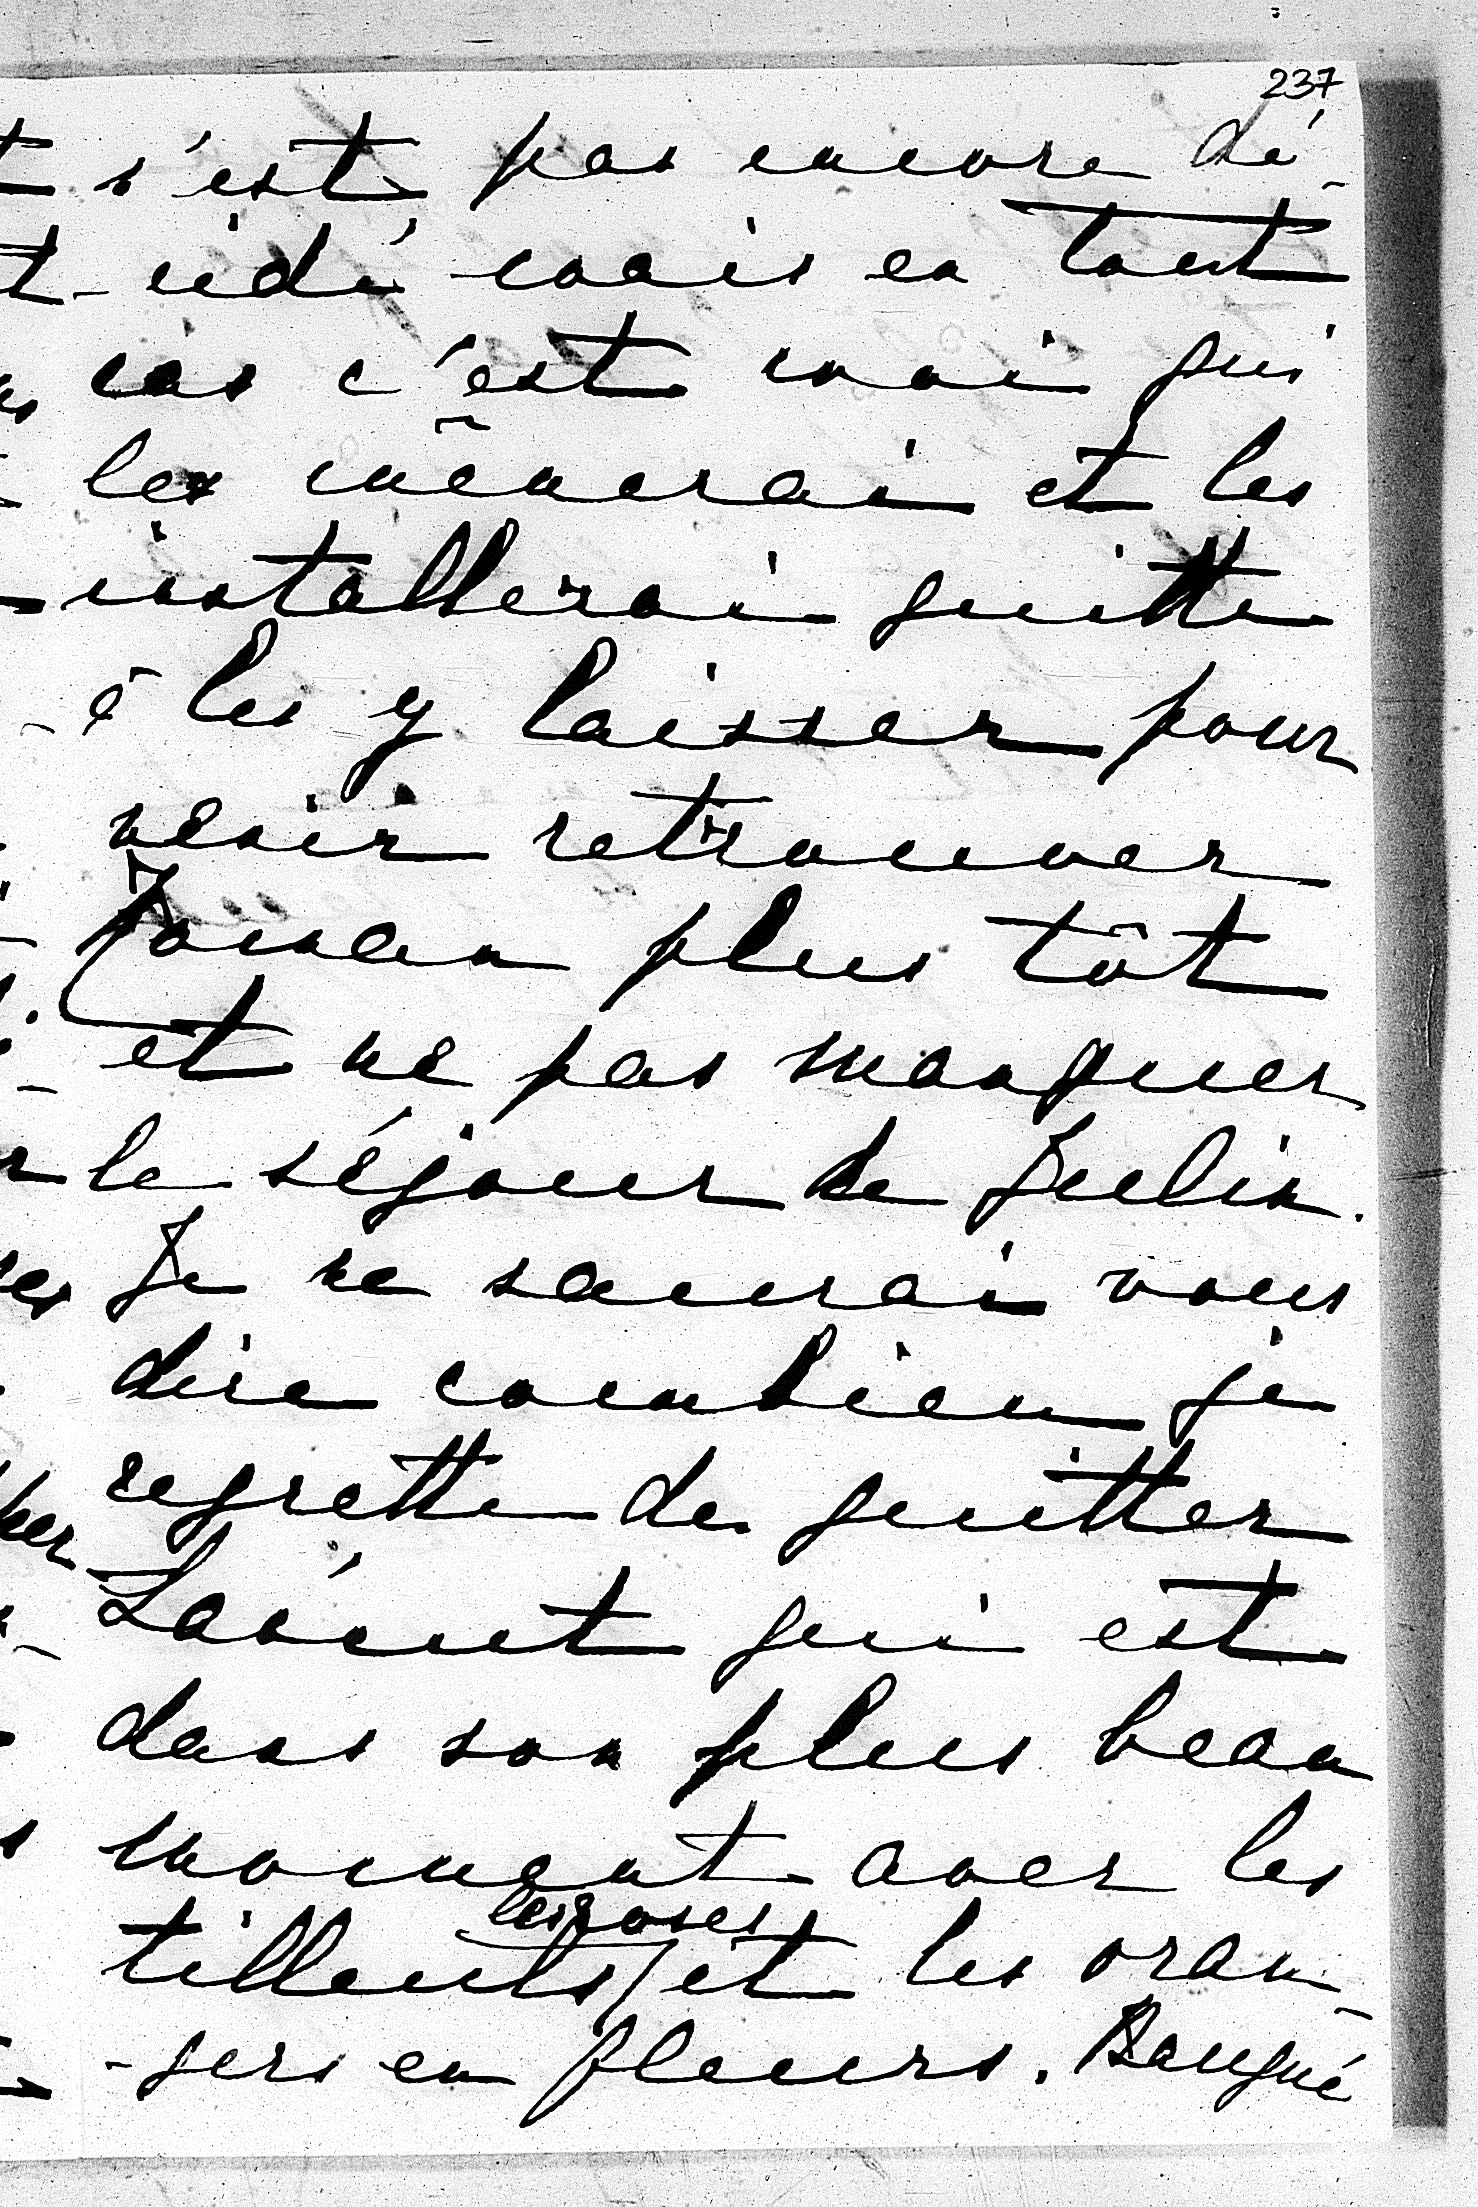 237
s'est pas encore dé-
-cidé mais en tout
cas c'est moi qui
les mênerai et les
installerai quitte
à les y laisser pour
venir retrouver
plus tôt
et ne pas manquer
le séjour de Julia.
Je ne saurai vous
dire combien je
regrette de quitter
qui est
dans son plus beau
moment avec les
les roses
tilleuls / et les oran-
-gers en fleurs.